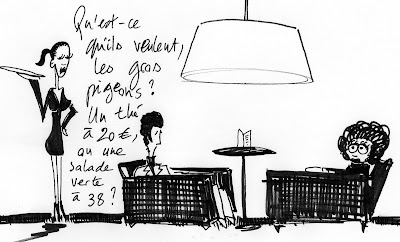 Qu'est-ce
qu'ils veulent,
les gros
pigeons?
Un thé
à 20€,
ou une
salade
verte
à 38?